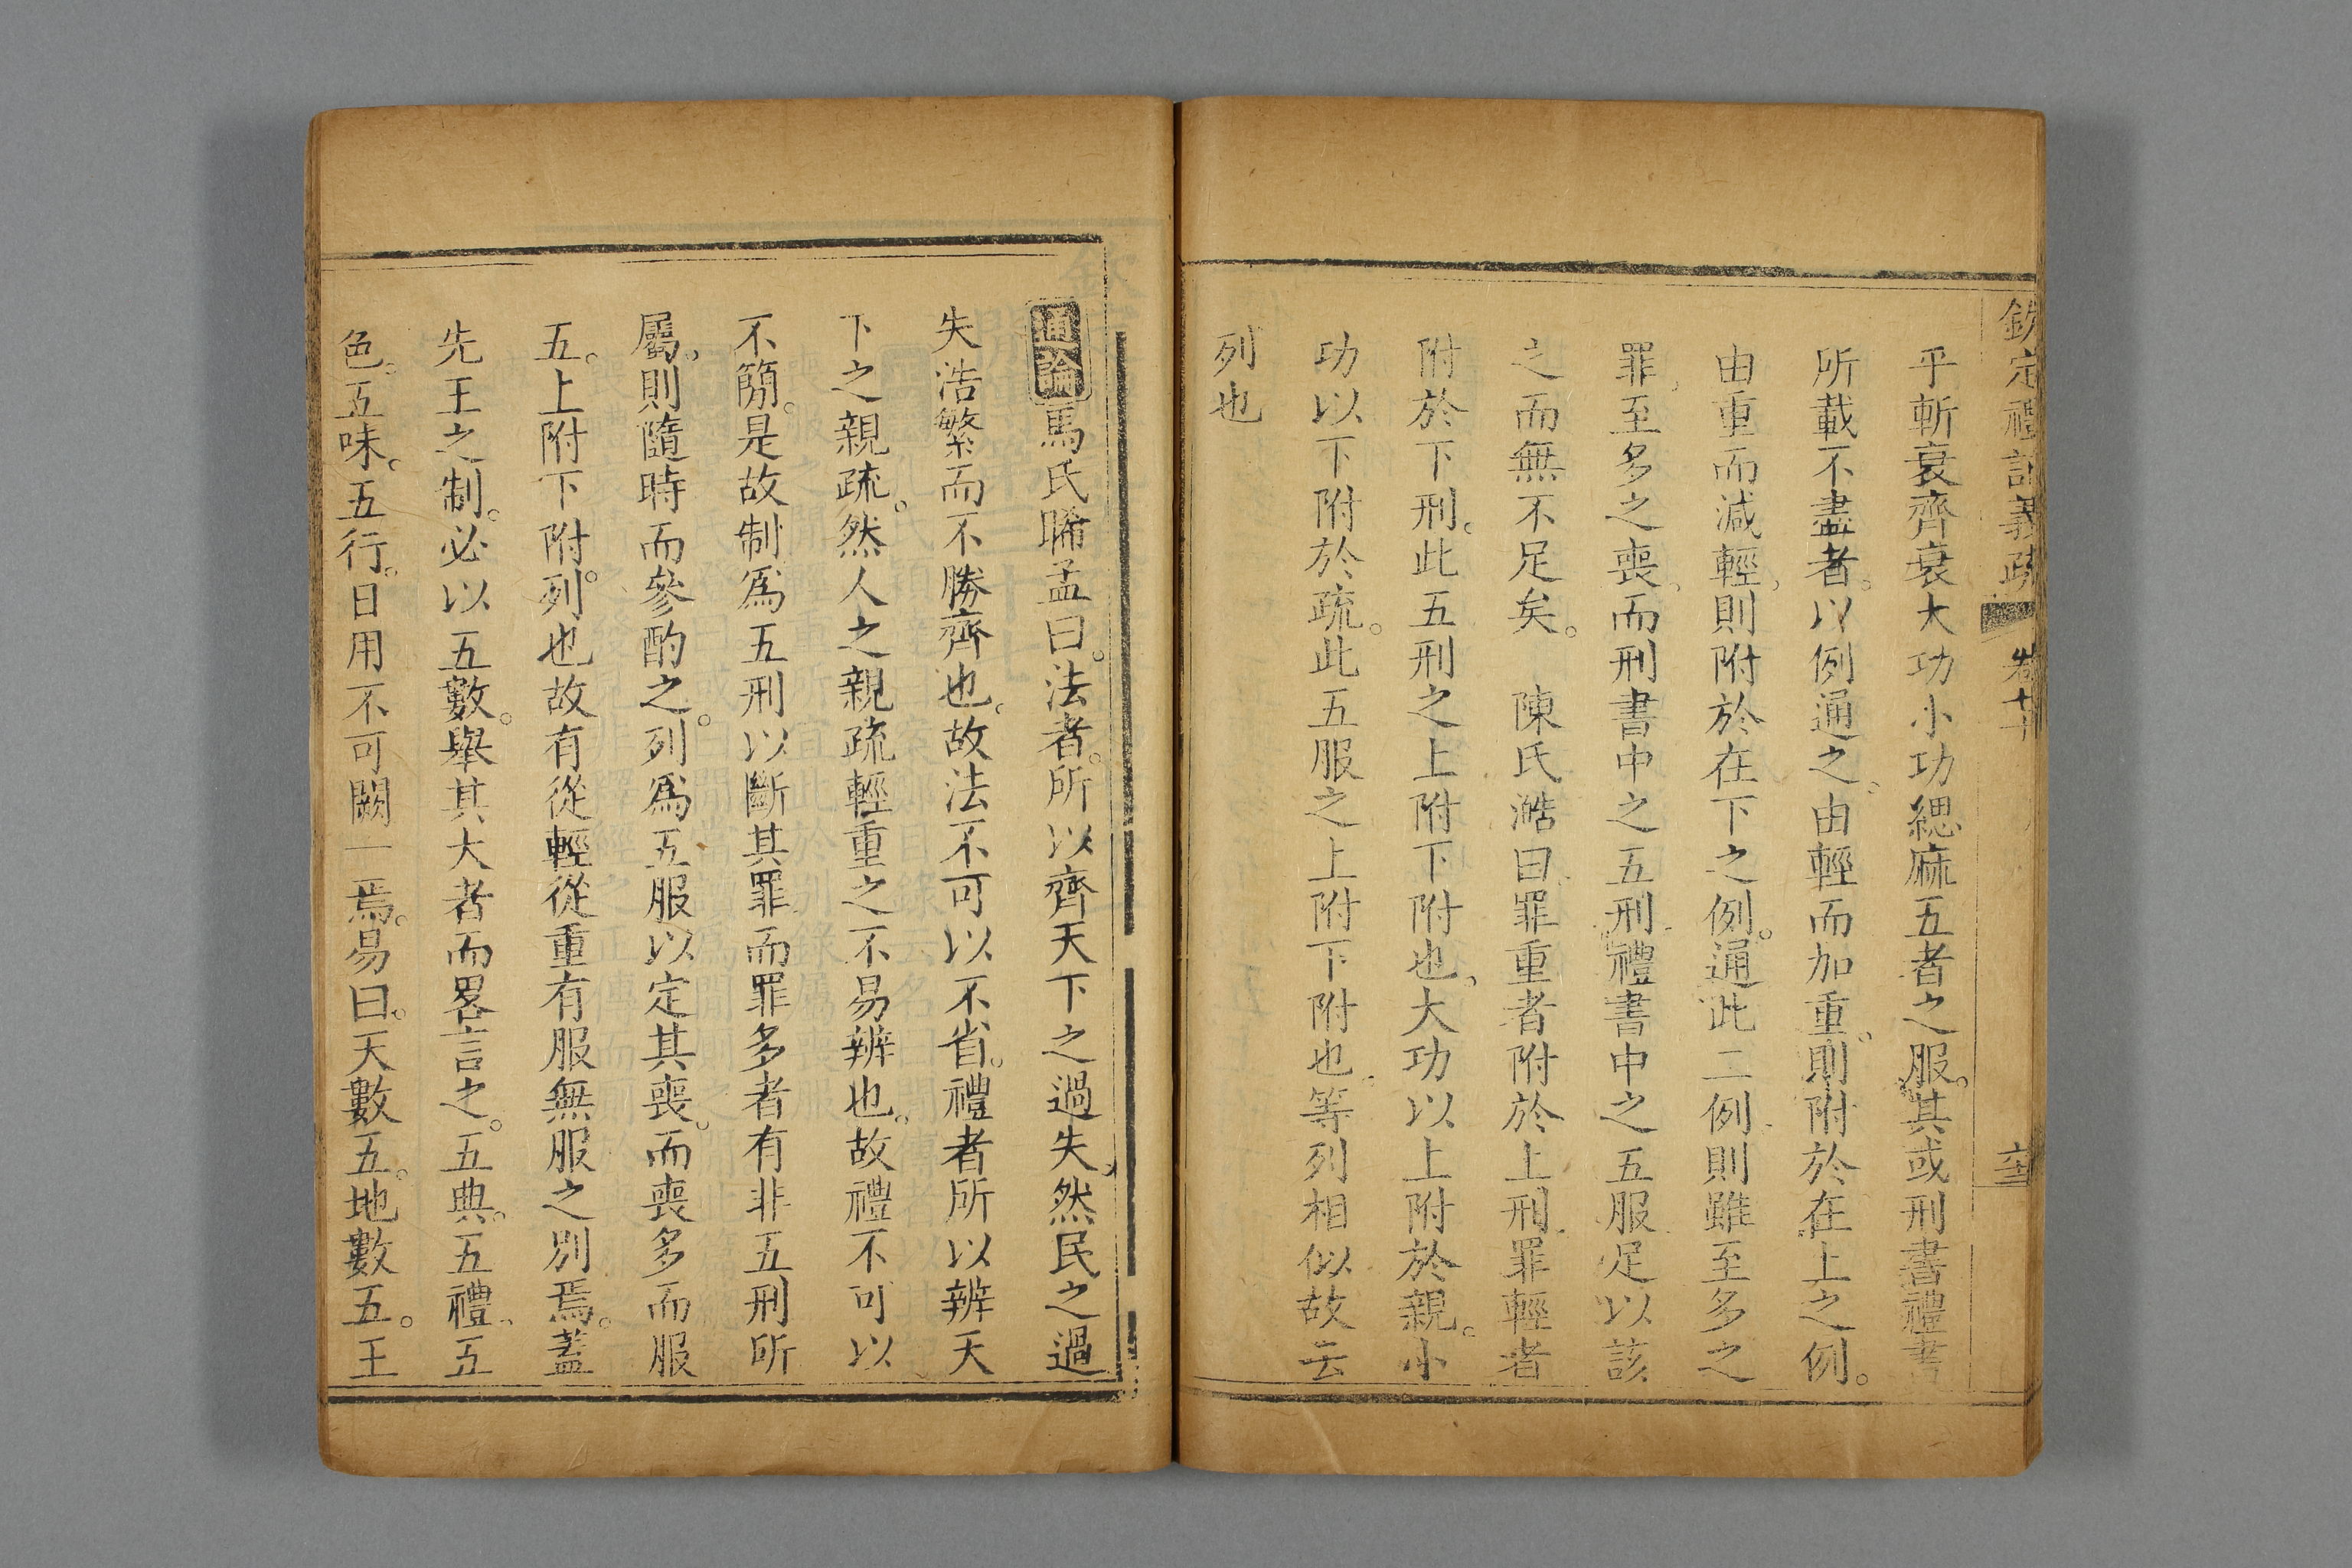 欽定禮記義疏 卷七十 六十三
平斬衰齊衰大功小功緦麻五者之服。其或刑書禮書
所載不盡者。以例通之。由輕而加重。則附於在上之例。
由重而減輕。則附於在下之例。通此二例。則雖至多之
罪。至多之喪。而刑書中之五刑。禮書中之五服。足以該
之而無不足矣。 陳氏澔曰。罪重者附於上刑。罪輕者
附於下刑。此五刑之上附下附也。大功以上附於親。小
功以下附於疏。此五服之上附下附也。等列相似故云
列也
通論馬氏睎孟曰。法者。所以齊天下之過失。然民之過
失浩繁而不勝齊也。故法不可以不省。禮者所以辨天
下之親疏。然人之親疏輕重之不易辨也。故禮不可以
不簡。是故制爲五刑以斷其罪。而罪多者有非五刑所
屬。則隨時而參酌之。列爲五服以定其喪。而喪多而服
五。上附下附。列也故有從輕從重有服無服之別焉。蓋
先王之制。必以五數。舉其大者而畧言之。五典。五禮。五
色。五味。五行。日用不可闕一焉。易曰。天數五。地數五。王